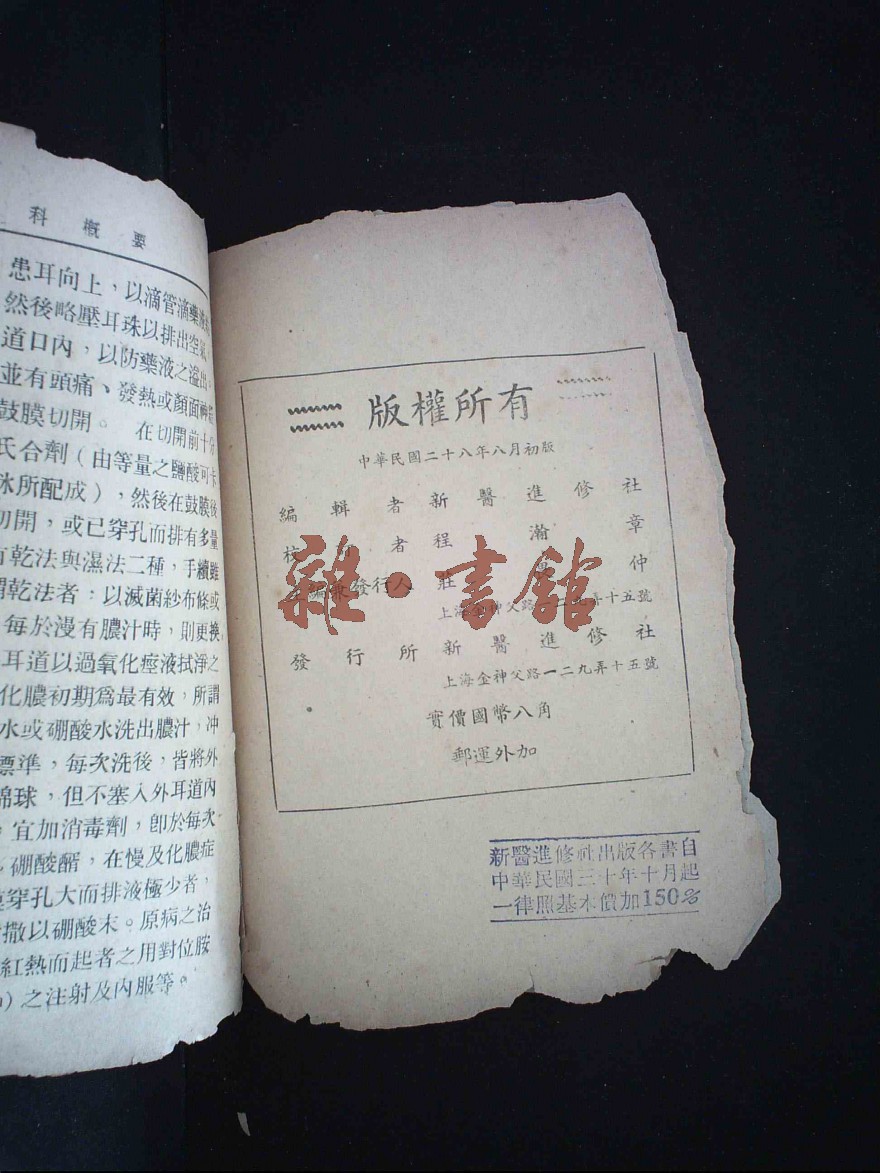 科概要
患耳向上，以滴管滴藥
然後略壓耳珠以排出空氣
道口內，以防藥液之溢出
並有頭痛、發熱或顏面神
鼓膜切開。在切開前十分
氏合劑（由等量之鹽酸可卡
冰所配成），然後在鼓膜後
切開，或已穿孔而排有多量
有乾法與濕法二種，手續雖
謂乾法者：以滅菌紗布條或
每於漫有膿汁時，則更換
耳道以過氧化瘂液拭淨之
化膿初期爲最有效，所謂
水或硼酸水洗出膿汁，冲
標準，每次洗後，皆將外
綿球，但不塞入外耳道內
，宜加消毒劑，卽於每次
硼酸醑，在慢及化膿症
穿孔大而排液極少者，
撒以硼酸末。原病之治
紅熱而起者之用對位胺
）之注射及內服等。
版權所有
中華民國二十八年八月初版
編輯者新醫進修社
者程瀚章
發行人莊仲
上海金神父路一二九弄十五號
發行所新醫進修社
上海金神父路一二九弄十五號
實價國幣八角
郵運外加
雜·書館
新醫進修社出版各書自
中華民國三十年十月起
一律照基本價加150%